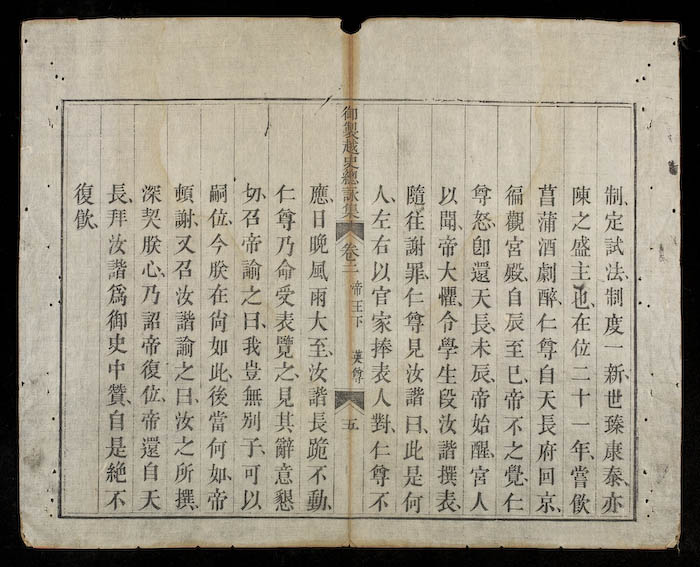 制定試法制度一新世臻康泰、亦
陳之盛主也、在位二十一年、嘗飲
菖蒲酒劇醉、仁尊自天長府回京、
徧觀宮殿、自辰至巳、帝不之覺、仁
尊怒、卽還天長、未辰、帝始醒、宮人
以聞、帝大懼、令學生段汝諧撰表、
隨往謝罪、仁尊見汝諧曰、此是何
人、左右以官家捧表人對、仁尊不
御製越史總詠集 卷二 帝王下 英尊 五
應、日晚風雨大至、汝諧長跪不動、
仁尊乃命受表覽之、見其辭意懇
切、召帝諭之曰、我豈無別子、可以
嗣位、今朕在尙如此、後當何如、帝
頓謝、又召汝諧諭之曰、汝之所撰、
深契朕心、乃詔帝復位、帝還自天
長、拜汝諧爲御史中贊、自是絶不
復飲、